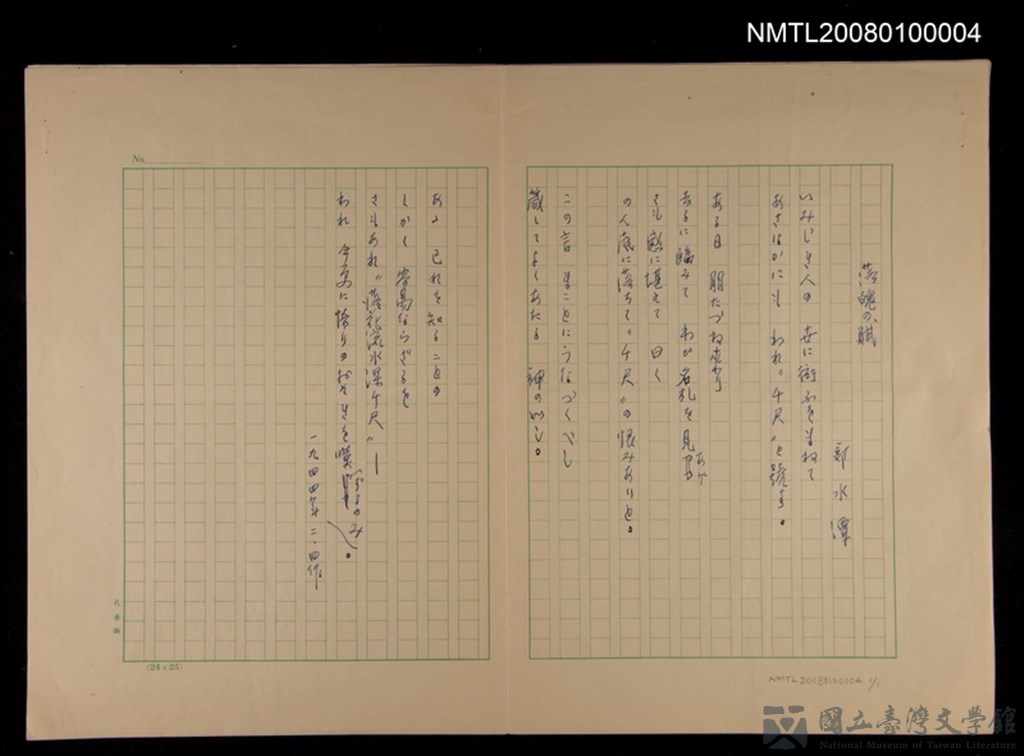 NMTL20080100004
落魄の賦
郭水潭
いみじき人の 世に衒ふをまねて
あさはかにも われ〃千尺〃と號す。
ある日 朋たづね来り
去るに臨みて わが名札を見あげ
さも感に堪えて 曰く
の人 底に落ちて〃千尺〃の恨みありと。
この言 まことにうなづくべし
箴してよくあたる 神の如し。
あゝ 己れを知ることの
しかく 容易ならざるを
さもあれ〃落花流水深千尺〃—
われ 今更に悟りのおそきを嘆ずるのみ。
一九四四年二・四作
No.
(24×25)
NMTL20080100004 1/1
國立臺灣文學館
National Museum of Taiwan Literature